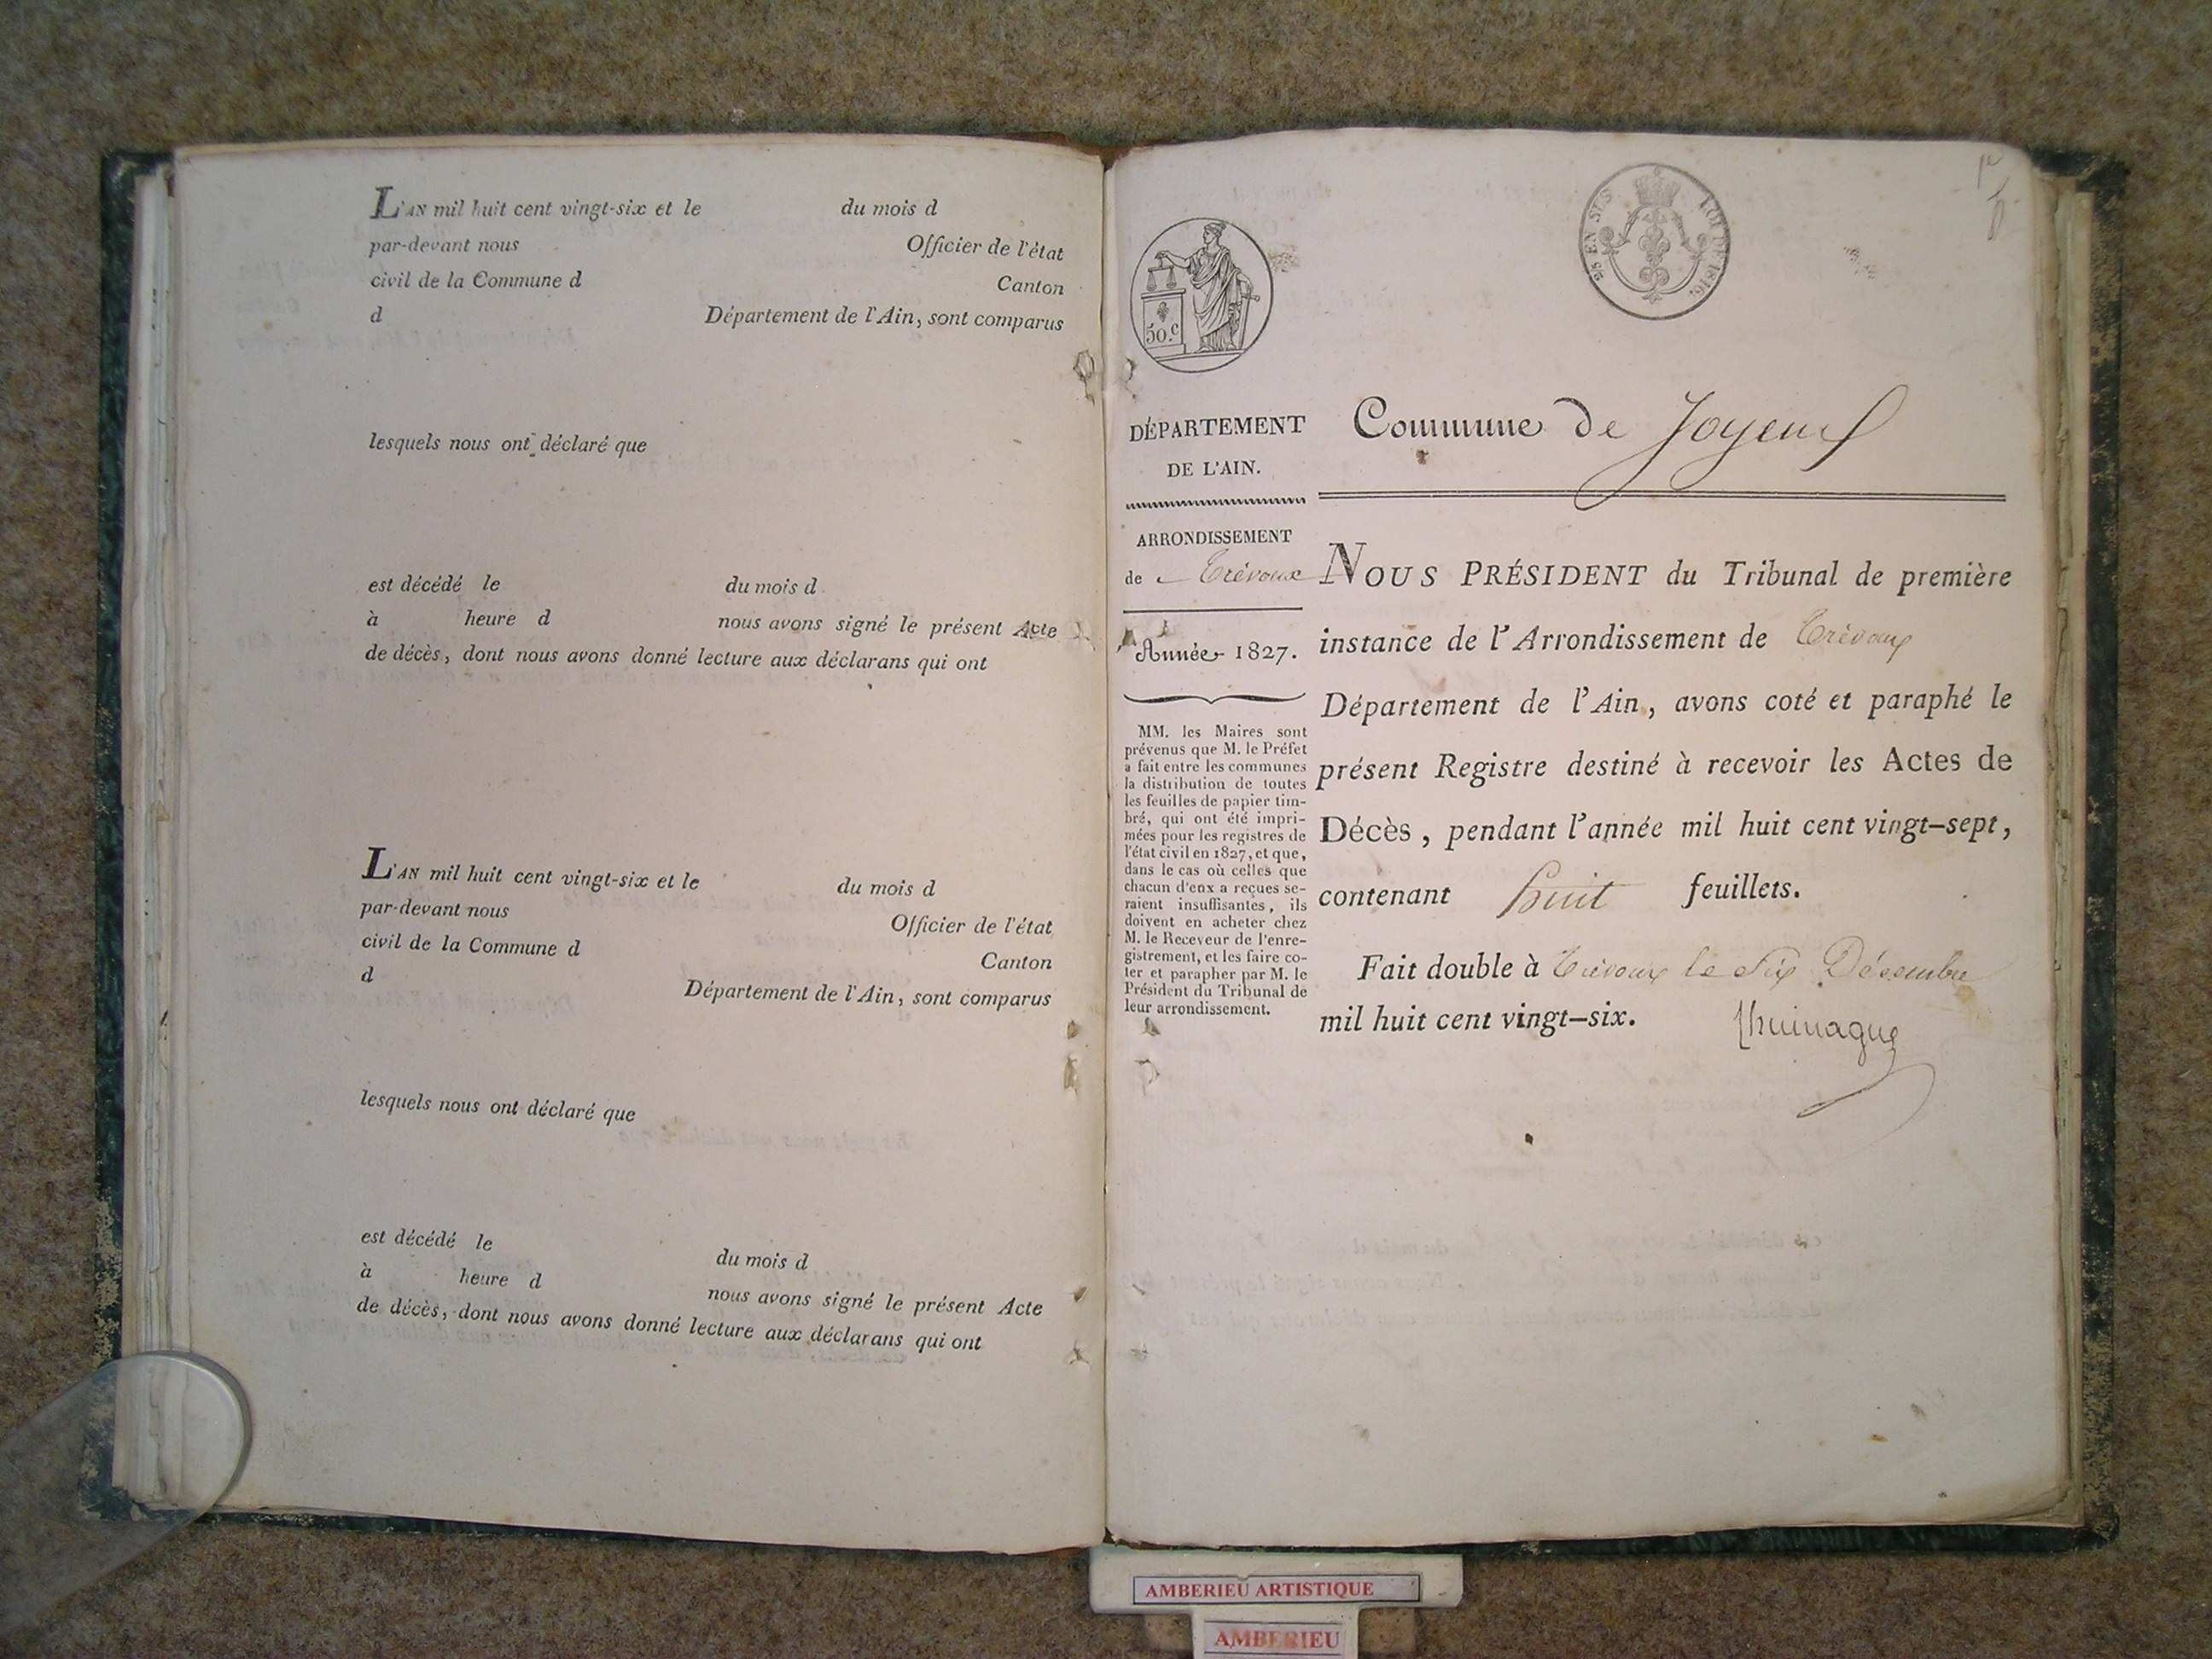 L'AN mil huit cent vingt-six et le du mois d
par-devant nous Officier de l'état
civil de la Commune d Canton
d Département de l'Ain, sont comparus
lesquels nous ont déclaré que
est décédé le du mois d
à heure d nous avons signé le présent Acte
de décès, dont nous avons donné lecture aux déclarans qui ont
L'AN mil huit cent vingt-six et le du mois d
par-devant nous Officier de l'état
civil de la Commune d Canton
d Département de l'Ain, sont comparus
lesquels nous ont déclaré que
est décédé le du mois d
à heure d nous avons signé le présent Acte
de décès, dont nous avons donné lecture aux déclarans qui ont
50.c
EN SUS LOI DE 1816.
DÉPARTEMENT
DE L'AIN.
ARRONDISSEMENT
de Trévoux
Année 1827.
MM. les Maires sont
prévenus que M. le Préfet
a fait entre les communes
la distribution de toutes
les feuilles de papier tim-
bré, qui ont été impri-
mées pour les registres de
l'état civil en 1827, et que,
dans le cas où celles que
chacun d'enx a reçues se-
raient insuffisantes, ils
doivent en acheter chez
M. le Receveur de l'enre-
gistrement, et les faire co-
ter et parapher par M. le
Président du Tribunal de
leur arrondissement.
Commune de Joyeux
NOUS PRÉSIDENT du Tribunal de première
instance de l'Arrondissement de Trévoux
Département de l'Ain, avons coté et paraphé le
présent Registre destiné à recevoir les Actes de
Décès, pendant l'année mil huit cent vingt-sept,
contenant huit feuillets.
Fait double à Trévoux le Six Décembre
mil huit cent vingt-six.
AMBERIEU ARTISTIQUE
AMBERIEU